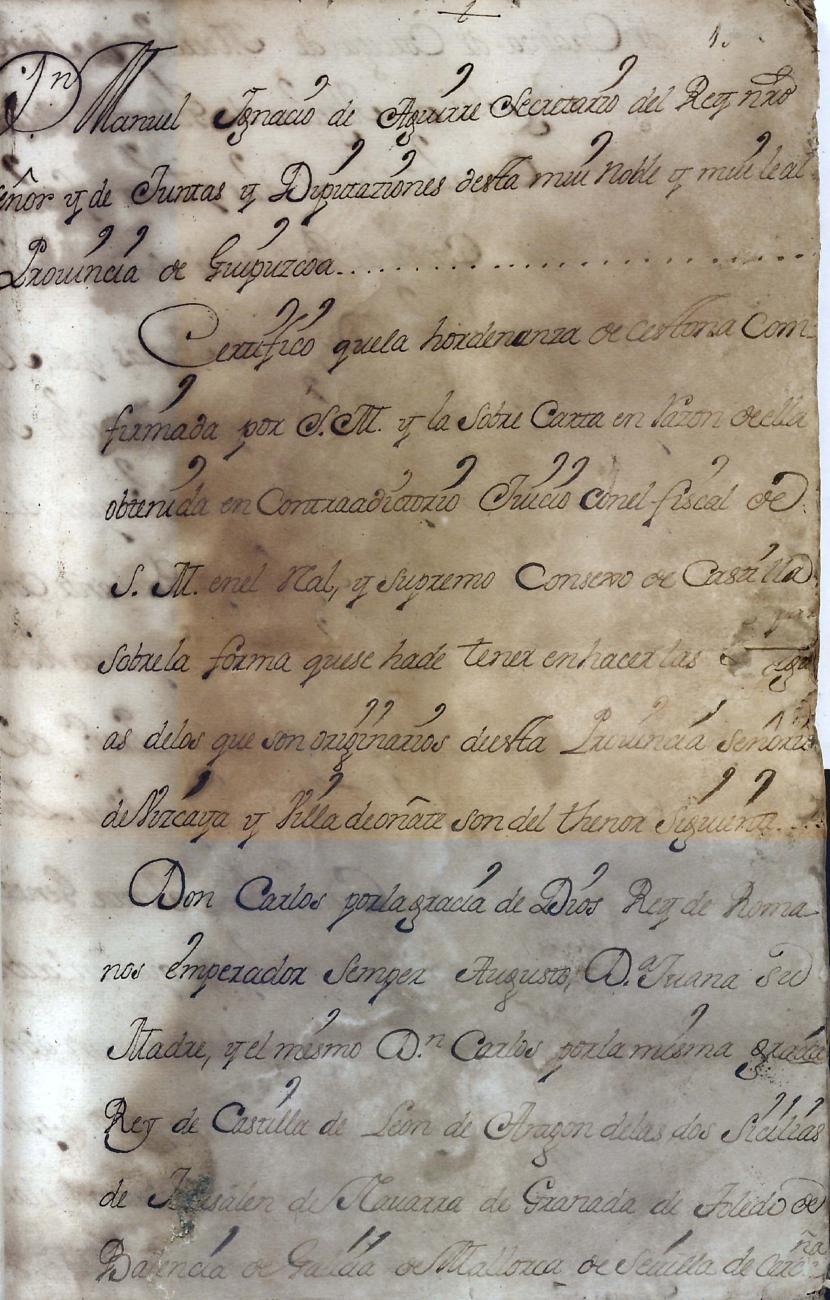 1.
Dn Manuel Ignacio de Aguirre Secretario del Rey nrõ
señor y de Juntas y Diputaziones desta mui Noble y mui leal
Prouincia de Guipuzcoa..................
Certifico quela hordenanza de cestona Com=
firmada por S.M. y la Sobre Carta en razon de ella
obtenida en Contraadictorio Juicio conel fiscal de
S. M. enel Rl, y Supremo Consexo de Castilla
Sobrela forma quese hade tener enhacer las
as delos que son originarios dessta Prouincia señorio
de Vizcaya y Villa deoñate son del thenor Siguiente...
Don Carlos porlagracia de Dios Rey de Roma
nos emperador Semper Augusto, D.a Juana su
Madre, y el mismo D.n Carlos porla misma gracia
Rey de Castilla de Leon de Aragon delas dos Sicilias
de Jerusalen de Nauarra de Granada de Toledo de
Balencia de Galicia de Mallorca de Seuilla de Cerdeña